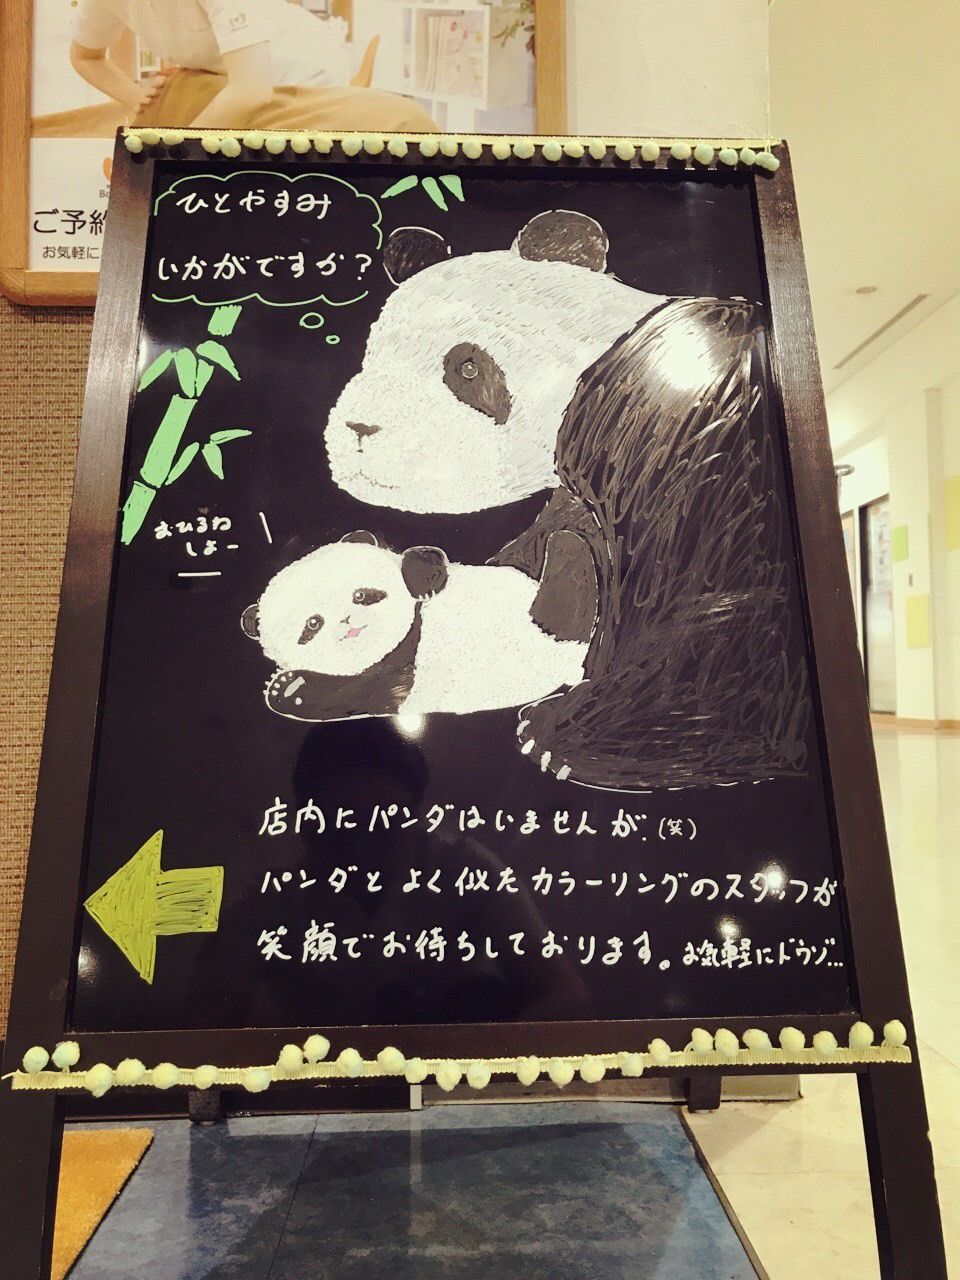 ひとやすみ
いかがですか?
おひるね
しよー
店内にパンダはいませんが、(笑)
パンダとよく似たカラーリングのスタッフが
笑顔でお待ちしております。お気軽にドウゾ...
ご予約
お気軽に